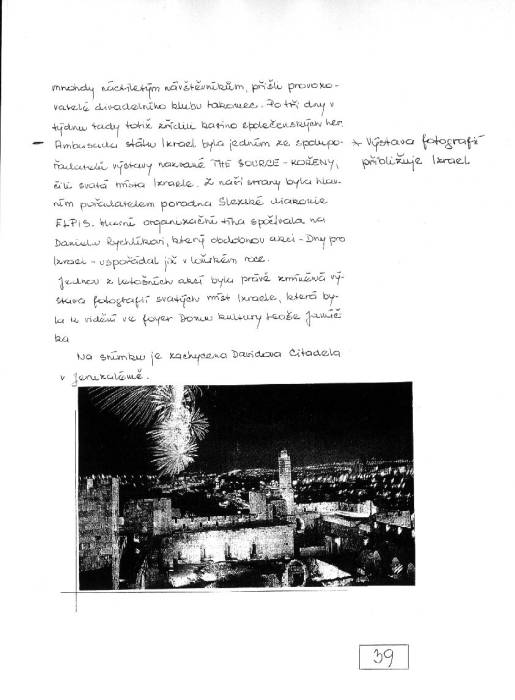 mnohdy náctiletým návštěvníkům, přišli provozo-
vatelé divadelního klubu nakonec. Po tři dny v
týdnu tady totiž zřídili kasino společenských her.
- Ambasáda státu Izrael byla jedním ze spolupo-
řadatelů výstavy nazvané THE SOURCE - KOŘENY,
čili svatá místa Izraele. Z naší strany byla hlav-
ním pořadatelem poradna Slezské diakonie
ELPIS. Hlavní organizační tíha spočívala na
Danielu Rychlíkovi, který obdobnou akci - Dny pro
Izrael - uspořádal již v loňském roce.
Jednou z letošních akcí byla právě zmíněná vý-
stava fotografií svatých míst Izraele, která by-
la k vidění ve foyer Domu kultury Leoše Janáč
ka
Na snímku je zachycena Davidova Citadela
v Jeruzalémě.
* Výstava fotografií
přibližuje Izrael
39